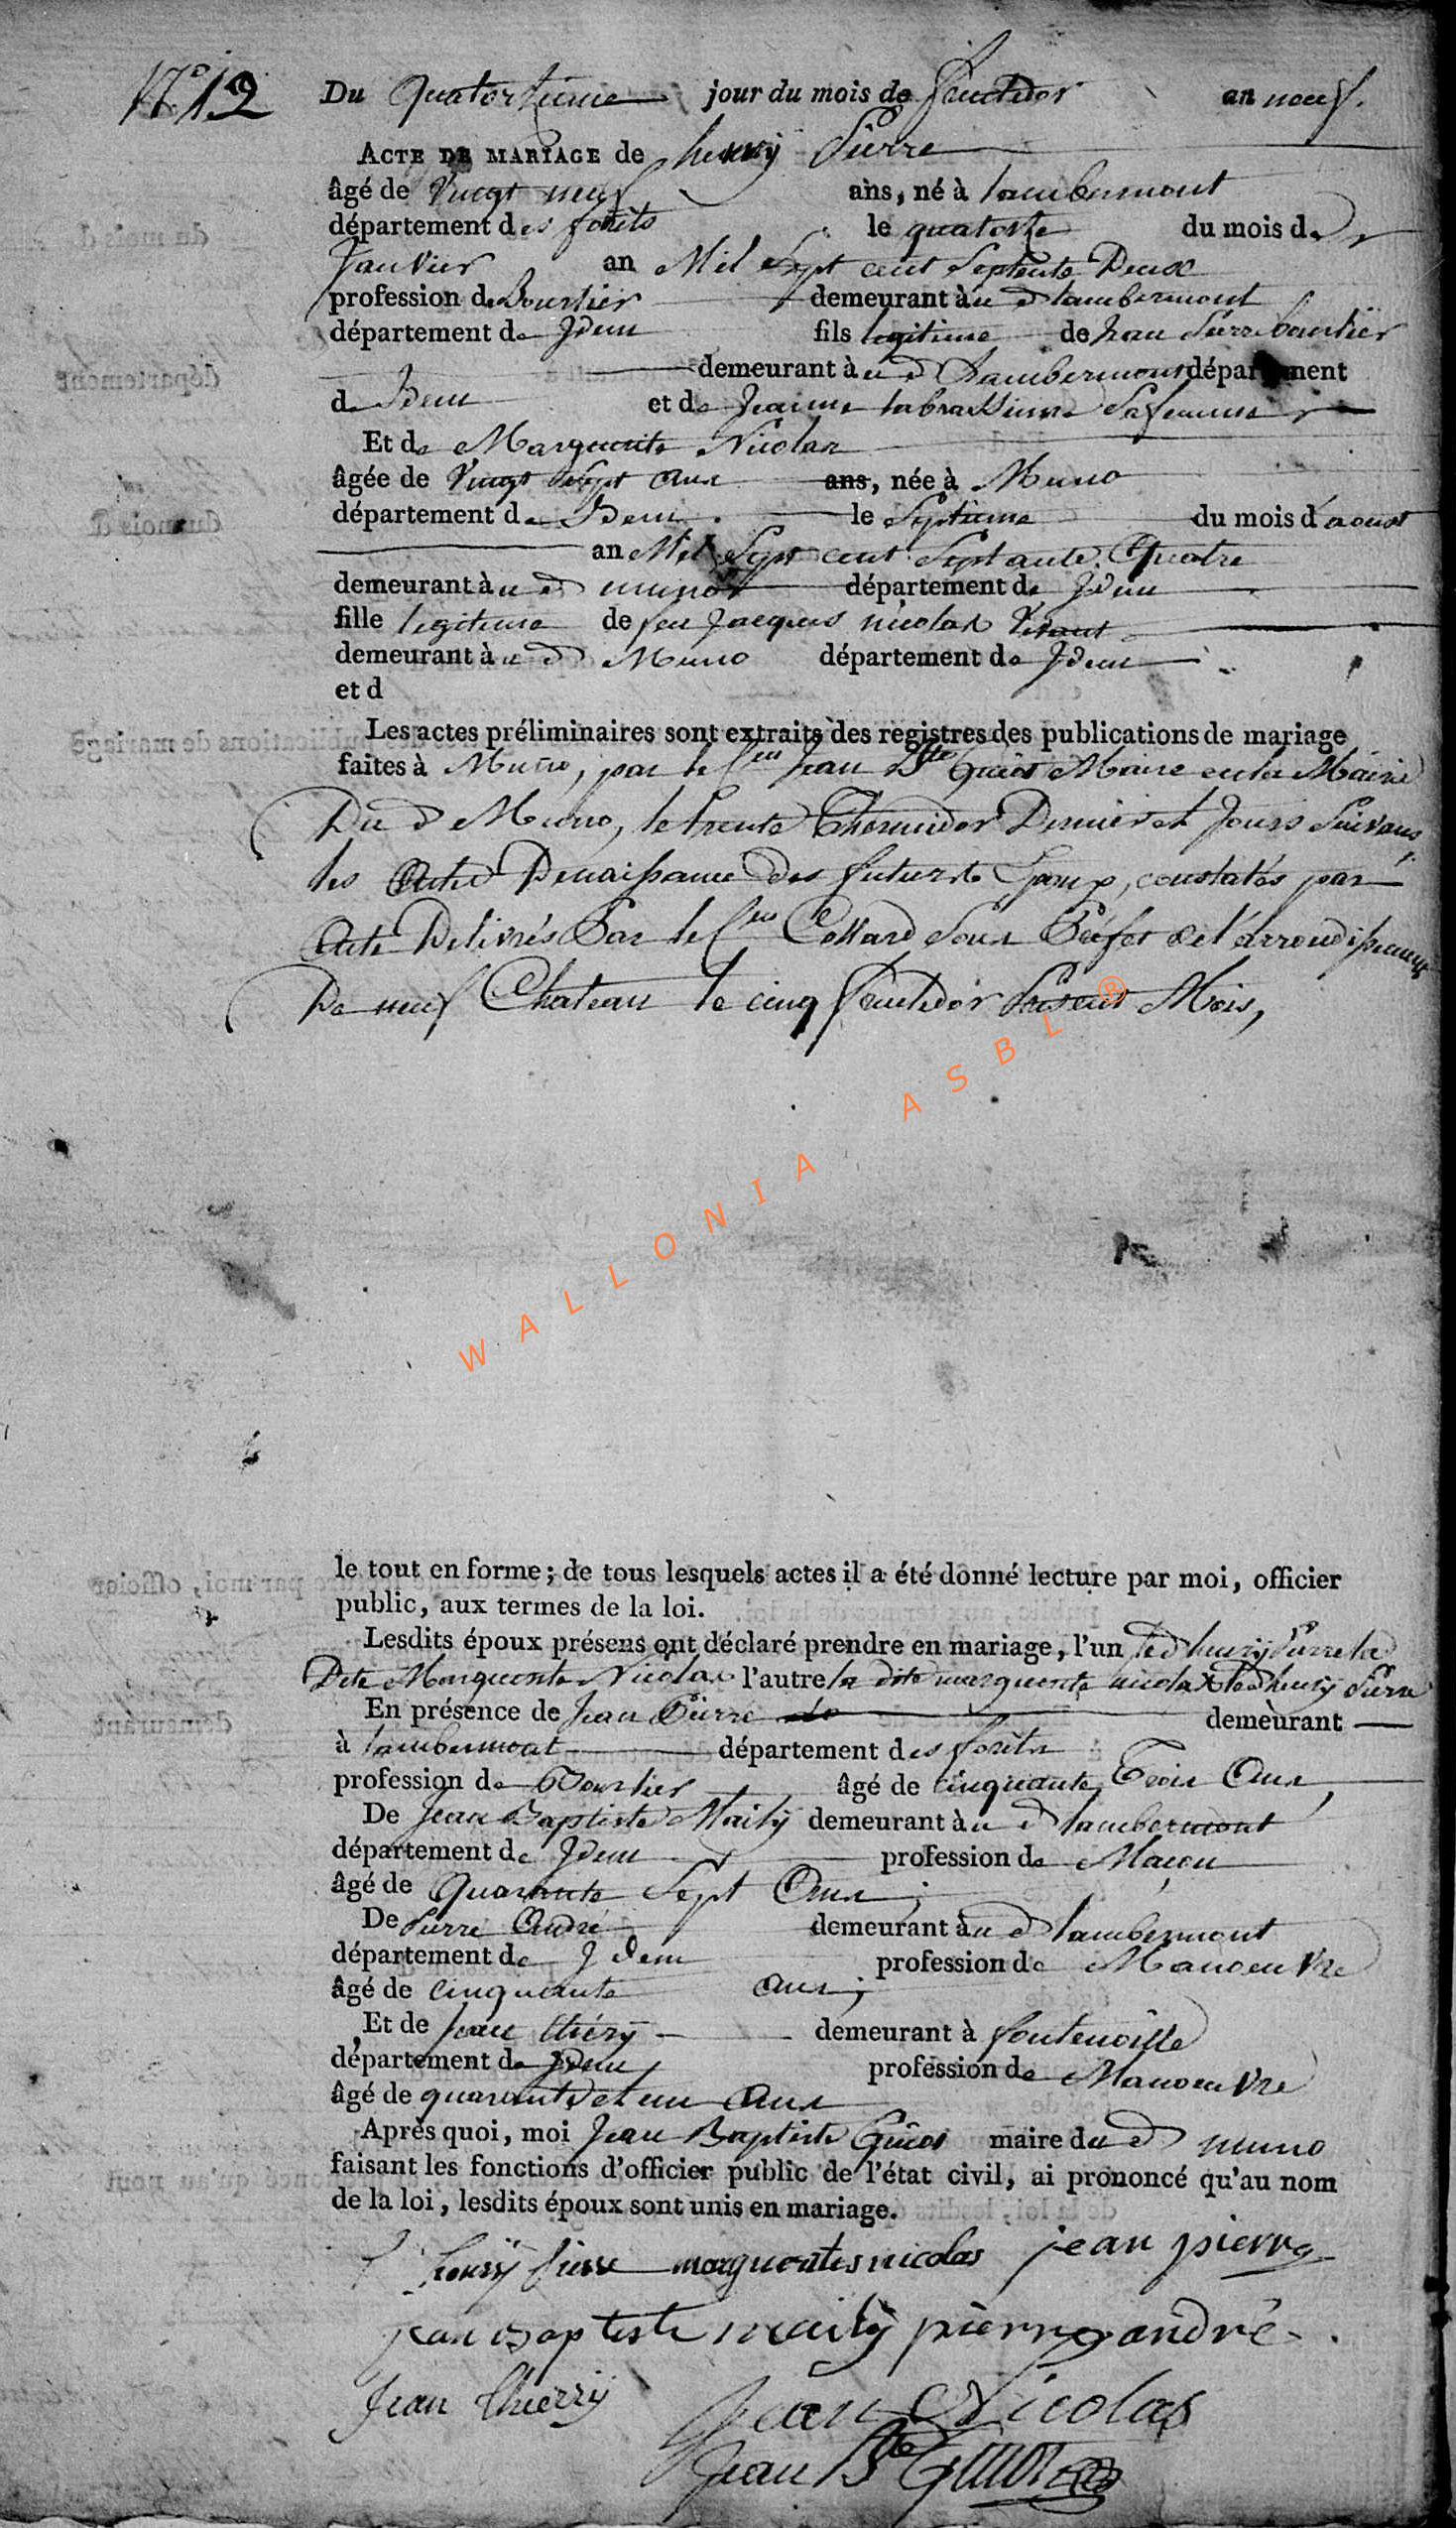 N.° 12
Du quatorzieme jour du mois de fructidor an neuf.
ACTE DE MARIAGE de henrÿ Pierre
âgé de Vingt neuf ans, né à lambermont
département des forêts le quatorze du mois de
Janvier an Mil Sept cent Septente Deux
profession de Bourlier demeurant au d lambermont
département de Jdem fils legitime de Jean Pierre bourlier
demeurant au d Lambermont département
de Jdem et de Jeanne labrassinne Sa femme
Et de Marguerite Nicolas
âgée de Vingt Sept ans ans, née à Muno
département de Jdem le Septieme du mois d'aoust
an Mil Sept cent Septante Quatre
demeurant au d muno département de Jdem
fille legitime de feu Jacques nicolas Vivant
demeurant au d Muno département de Jdem
et d
Les actes préliminaires sont extraits des registres des publications de mariage
faites à Muno, par le Cen Jean Bte Guiot Maire en la Mairie
Du d Muno, le trente Thermidor Dernier et Jours Suivans,
les Actes De naissance des futurs Epoux, constatés par
Acte Delivrés Par le Cen Collard Sous Préfet de l'arrondissement
De neuf Chateau le cinq fructidor Présent Mois,
WALLONIA ASBL ®
le tout en forme; de tous lesquels actes il a été donné lecture par moi, officier
public, aux termes de la loi.
Lesdits époux présens ont déclaré prendre en mariage, l'un led henrÿ Pierre la
Dite Marguerite Nicolas l'autre la dite marguerite nicolas led henrÿ Pierre
En présence de Jean Pierre demeurant
à lambermont département des forêts
profession de Bourlier âgé de cinquante Trois Ans,
De Jean Baptiste Mailÿ demeurant au d lambermont
département de Jdem profession de Maçon
âgé de Quarante Sept Ans;
De Pierre André demeurant au d lambermont
département de Jdem profession de Manoeuvre
âgé de cinquante ans;
Et de Jean thiérÿ demeurant à fontenoille
département de Jdem profession de Manoeuvre
âgé de quarante et un Ans
Après quoi, moi Jean Baptiste Guiot maire du d muno
faisant les fonctions d'officier public de l'état civil, ai prononcé qu'au nom
de la loi, lesdits époux sont unis en mariage.
henrÿ Pierre marguerites nicolas jean pierre
jean baptiste mailÿ pierre andré
Jean thierrÿ Jean Nicolas
Jean Bte Guiot